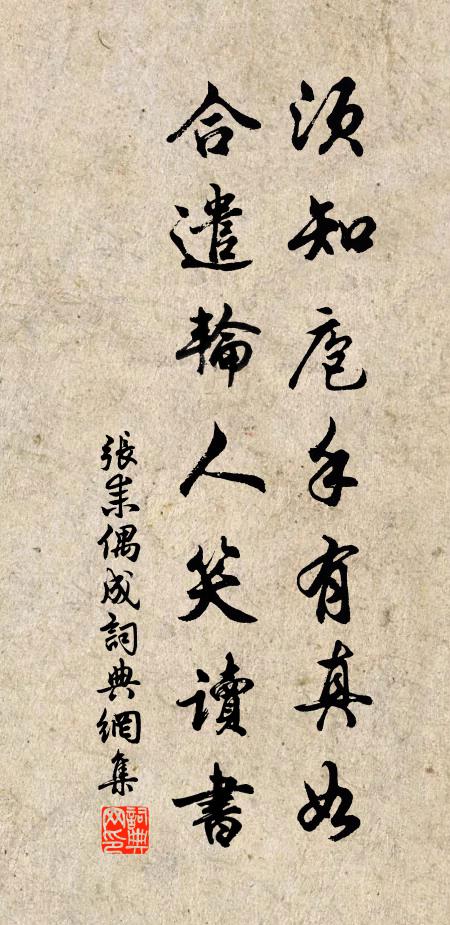 須知庖手有真如
合遣輪人笑讀書
張耒偶成詞典網集
詞典網印